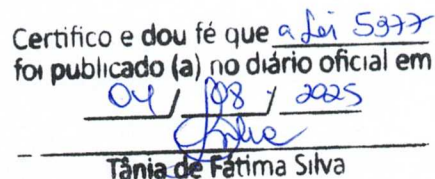 Certifico e dou fé que a Lei 5377
foi publicado (a) no diário oficial em
04 / 08 / 2025
Tânia de Fátima Silva